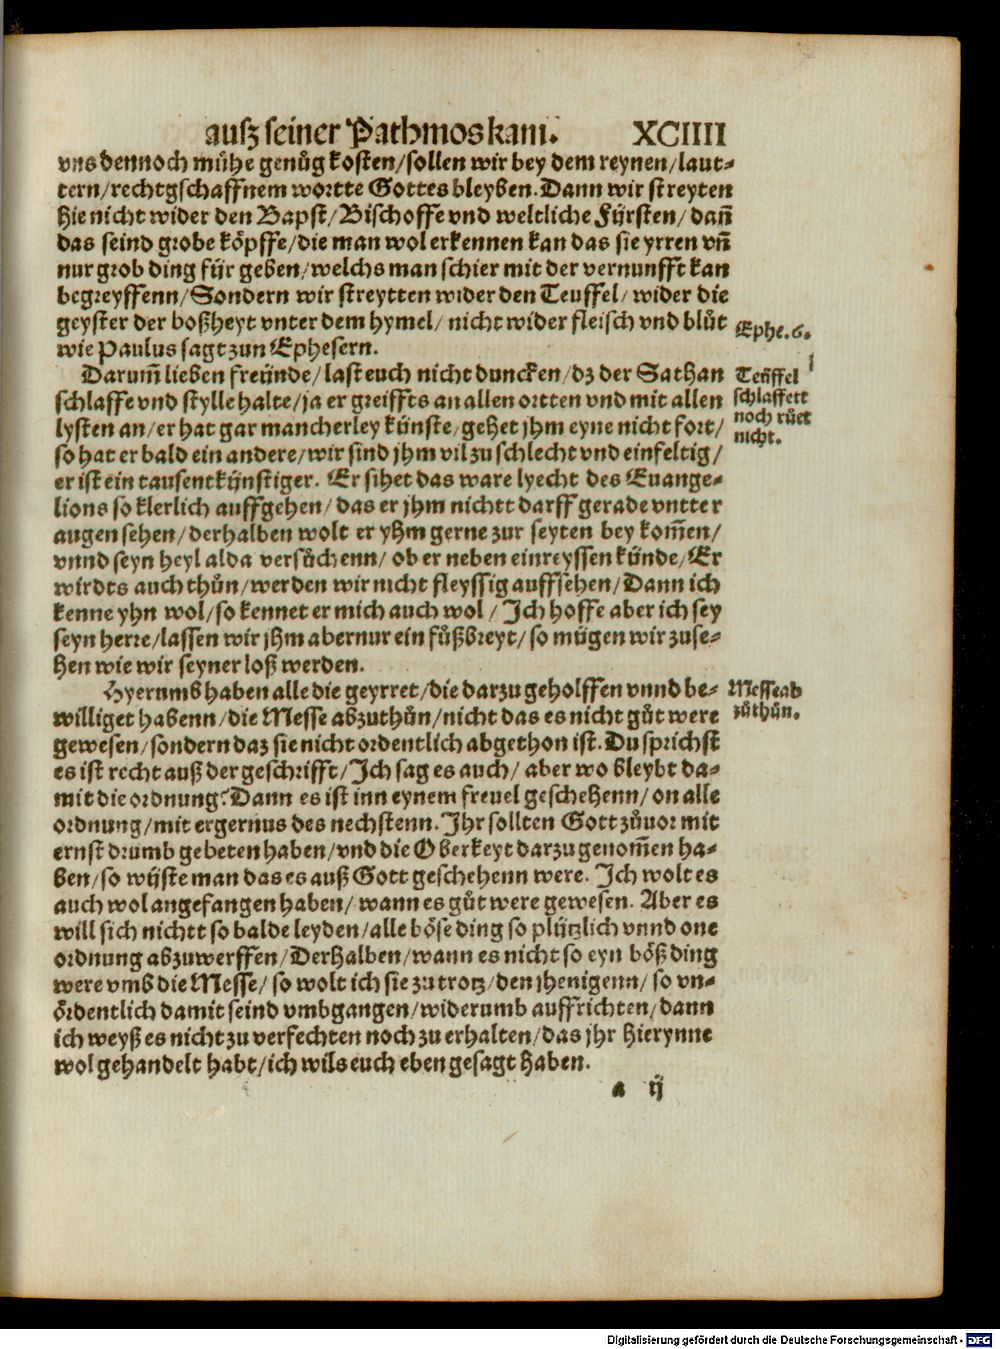 ausz seiner Pathmos kam. XCIIII
vns dennoch mühe genůg kosten/sollen wir bey dem reynen/laut-
tern/rechtgschaffnem wortte Gottes bleyben. Dann wir streyten
hie nicht wider den Bapst/Bischoffe vnd weltliche Fürsten/dañ
das seind grobe köpffe/die man wol erkennen kan das sie yrren vñ
nur grob ding für geben/welchs man schier mit der vernunfft kan
begreyffenn/Sondern wir streytten wider den Teuffel/wider die
geyster der boßheyt vnter dem hymel/nicht wider fleisch vnd blůt
wie Paulus sagt zun Ephesern.
Ephe.6.
Darum̃ lieben freünde/last euch nicht duncken/dz der Sathan
schlaffe vnd stylle halte/ja er greiffts an allen ortten vnd mit allen
lysten an/er hat gar mancherley künste/gehet jhm eyne nicht fort/
so hat er bald ein andere/wir sind jhm vil zu schlecht vnd einfeltig/
er ist ein tausentkünstiger. Er sihet das ware lyecht des Euange-
lions so klerlich auffgehen/das er jhm nichtt darff gerade vntter
augen sehen/derhalben wolt er yhm gerne zur seyten bey kom̃en/
vnnd seyn heyl alda versůchenn/ob er neben einreyssen künde/Er
wirdts auch thůn/werden wir nicht fleyssig auffsehen/Dann ich
kenne yhn wol/so kennet er mich auch wol/Ich hoffe aber ich sey
seyn herre/lassen wir jhm aber nur ein fůßbreyt/so mügen wir zuse-
hen wie wir seyner loß werden.
Teüffel
schlaffett
noch růet
nicht.
Hyerumb haben alle die geyrret/die darzu geholffen vnnd be-
williget habenn/die Messe abzuthůn/nicht das es nicht gůt were
gewesen/sondern daz sie nicht ordentlich abgethon ist. Du sprichst
es ist recht auß der geschrifft/Ich sag es auch/aber wo bleybt da-
mit die ordnung? Dann es ist inn eynem freuel geschehenn/on alle
ordnung/mit ergernus des nechstenn. Ihr sollten Gott zůuor mit
ernst drumb gebeten haben/vnd die Oberkeyt darzu genom̃en ha-
ben/so wüste man das es auß Gott geschehenn were. Ich wolt es
auch wol angefangen haben/wann es gůt were gewesen. Aber es
will sich nichtt so balde leyden/alle böse ding so plützlich vnnd one
ordnung abzuwerffen/Derhalben/wann es nicht so eyn böß ding
were vmb die Messe/so wolt ich sie zu trotz/den jhenigenn/so vn-
ördentlich damit seind vmbgangen/widerumb auffrichten/dann
ich weyß es nicht zu verfechten noch zu erhalten/das jhr hierynne
wol gehandelt habt/ich wils euch eben gesagt haben.
Messe ab
zůthůn.
a ij
Digitalisierung gefördert durch die Deutsche Forschungsgemeinschaft - DFG